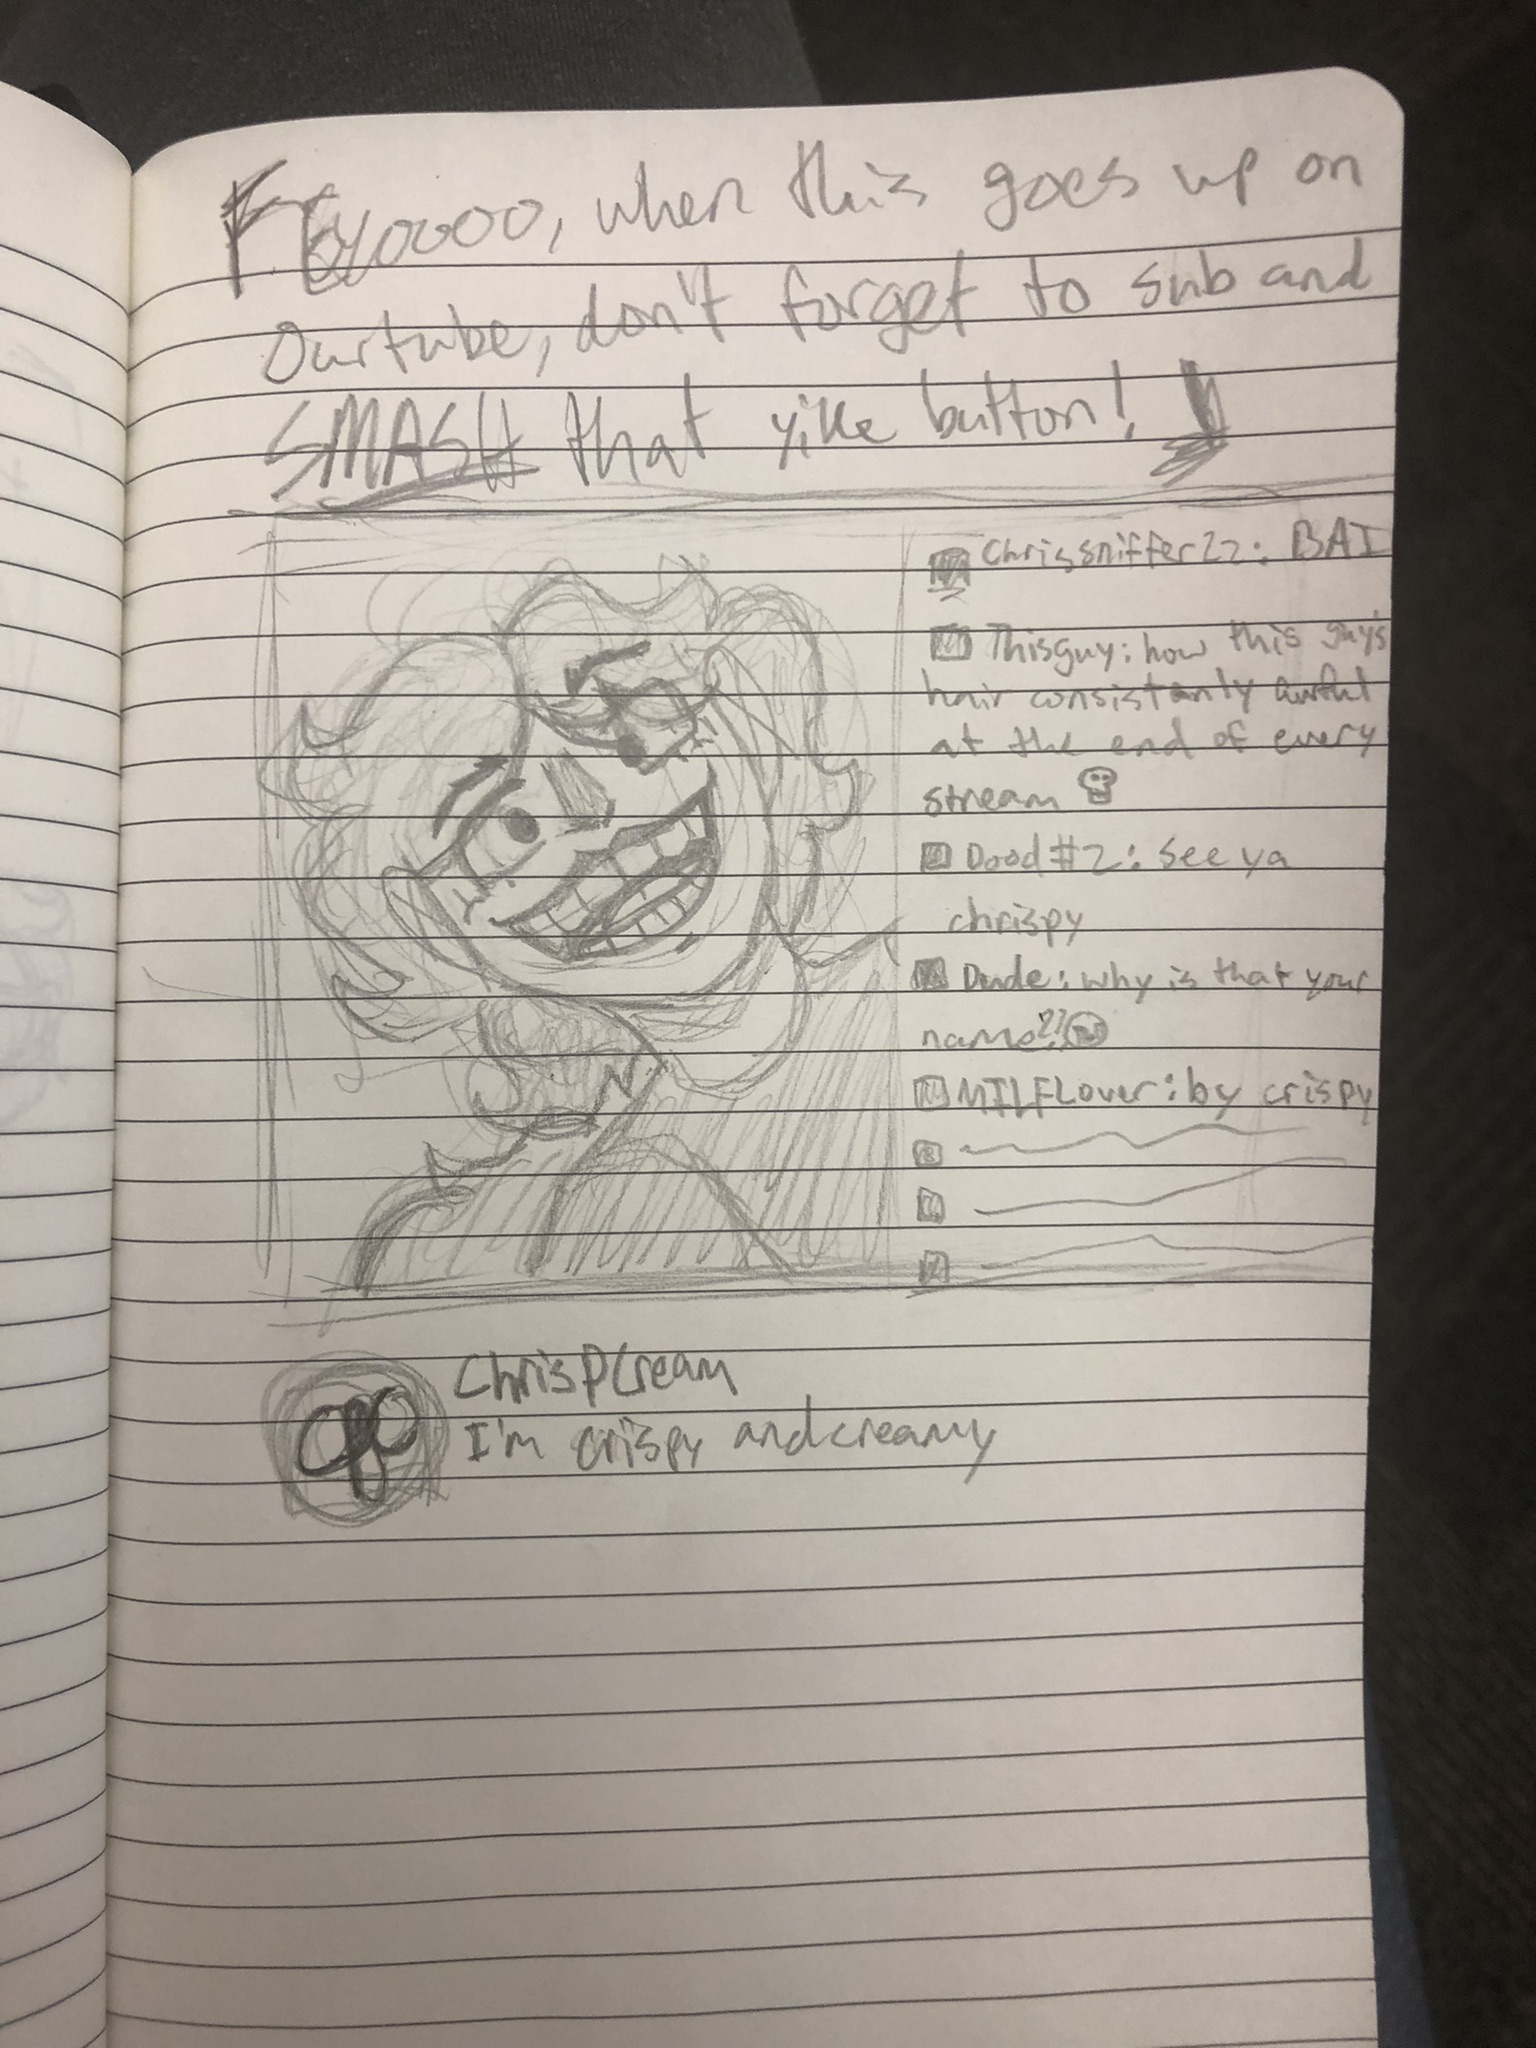 yoooo, when this goes up on
Ourtube, don't forget to sub and
SMASH that yike button!
Chrissniffer22: BAI
Thisguy: how this guy's
hair consistanly awful
at the end of every
stream
Dood#2: see ya
chrispy
Dude: why is that your
name?!
MILFLover: by crispy
ChrisPCream
I'm crispy and creamy